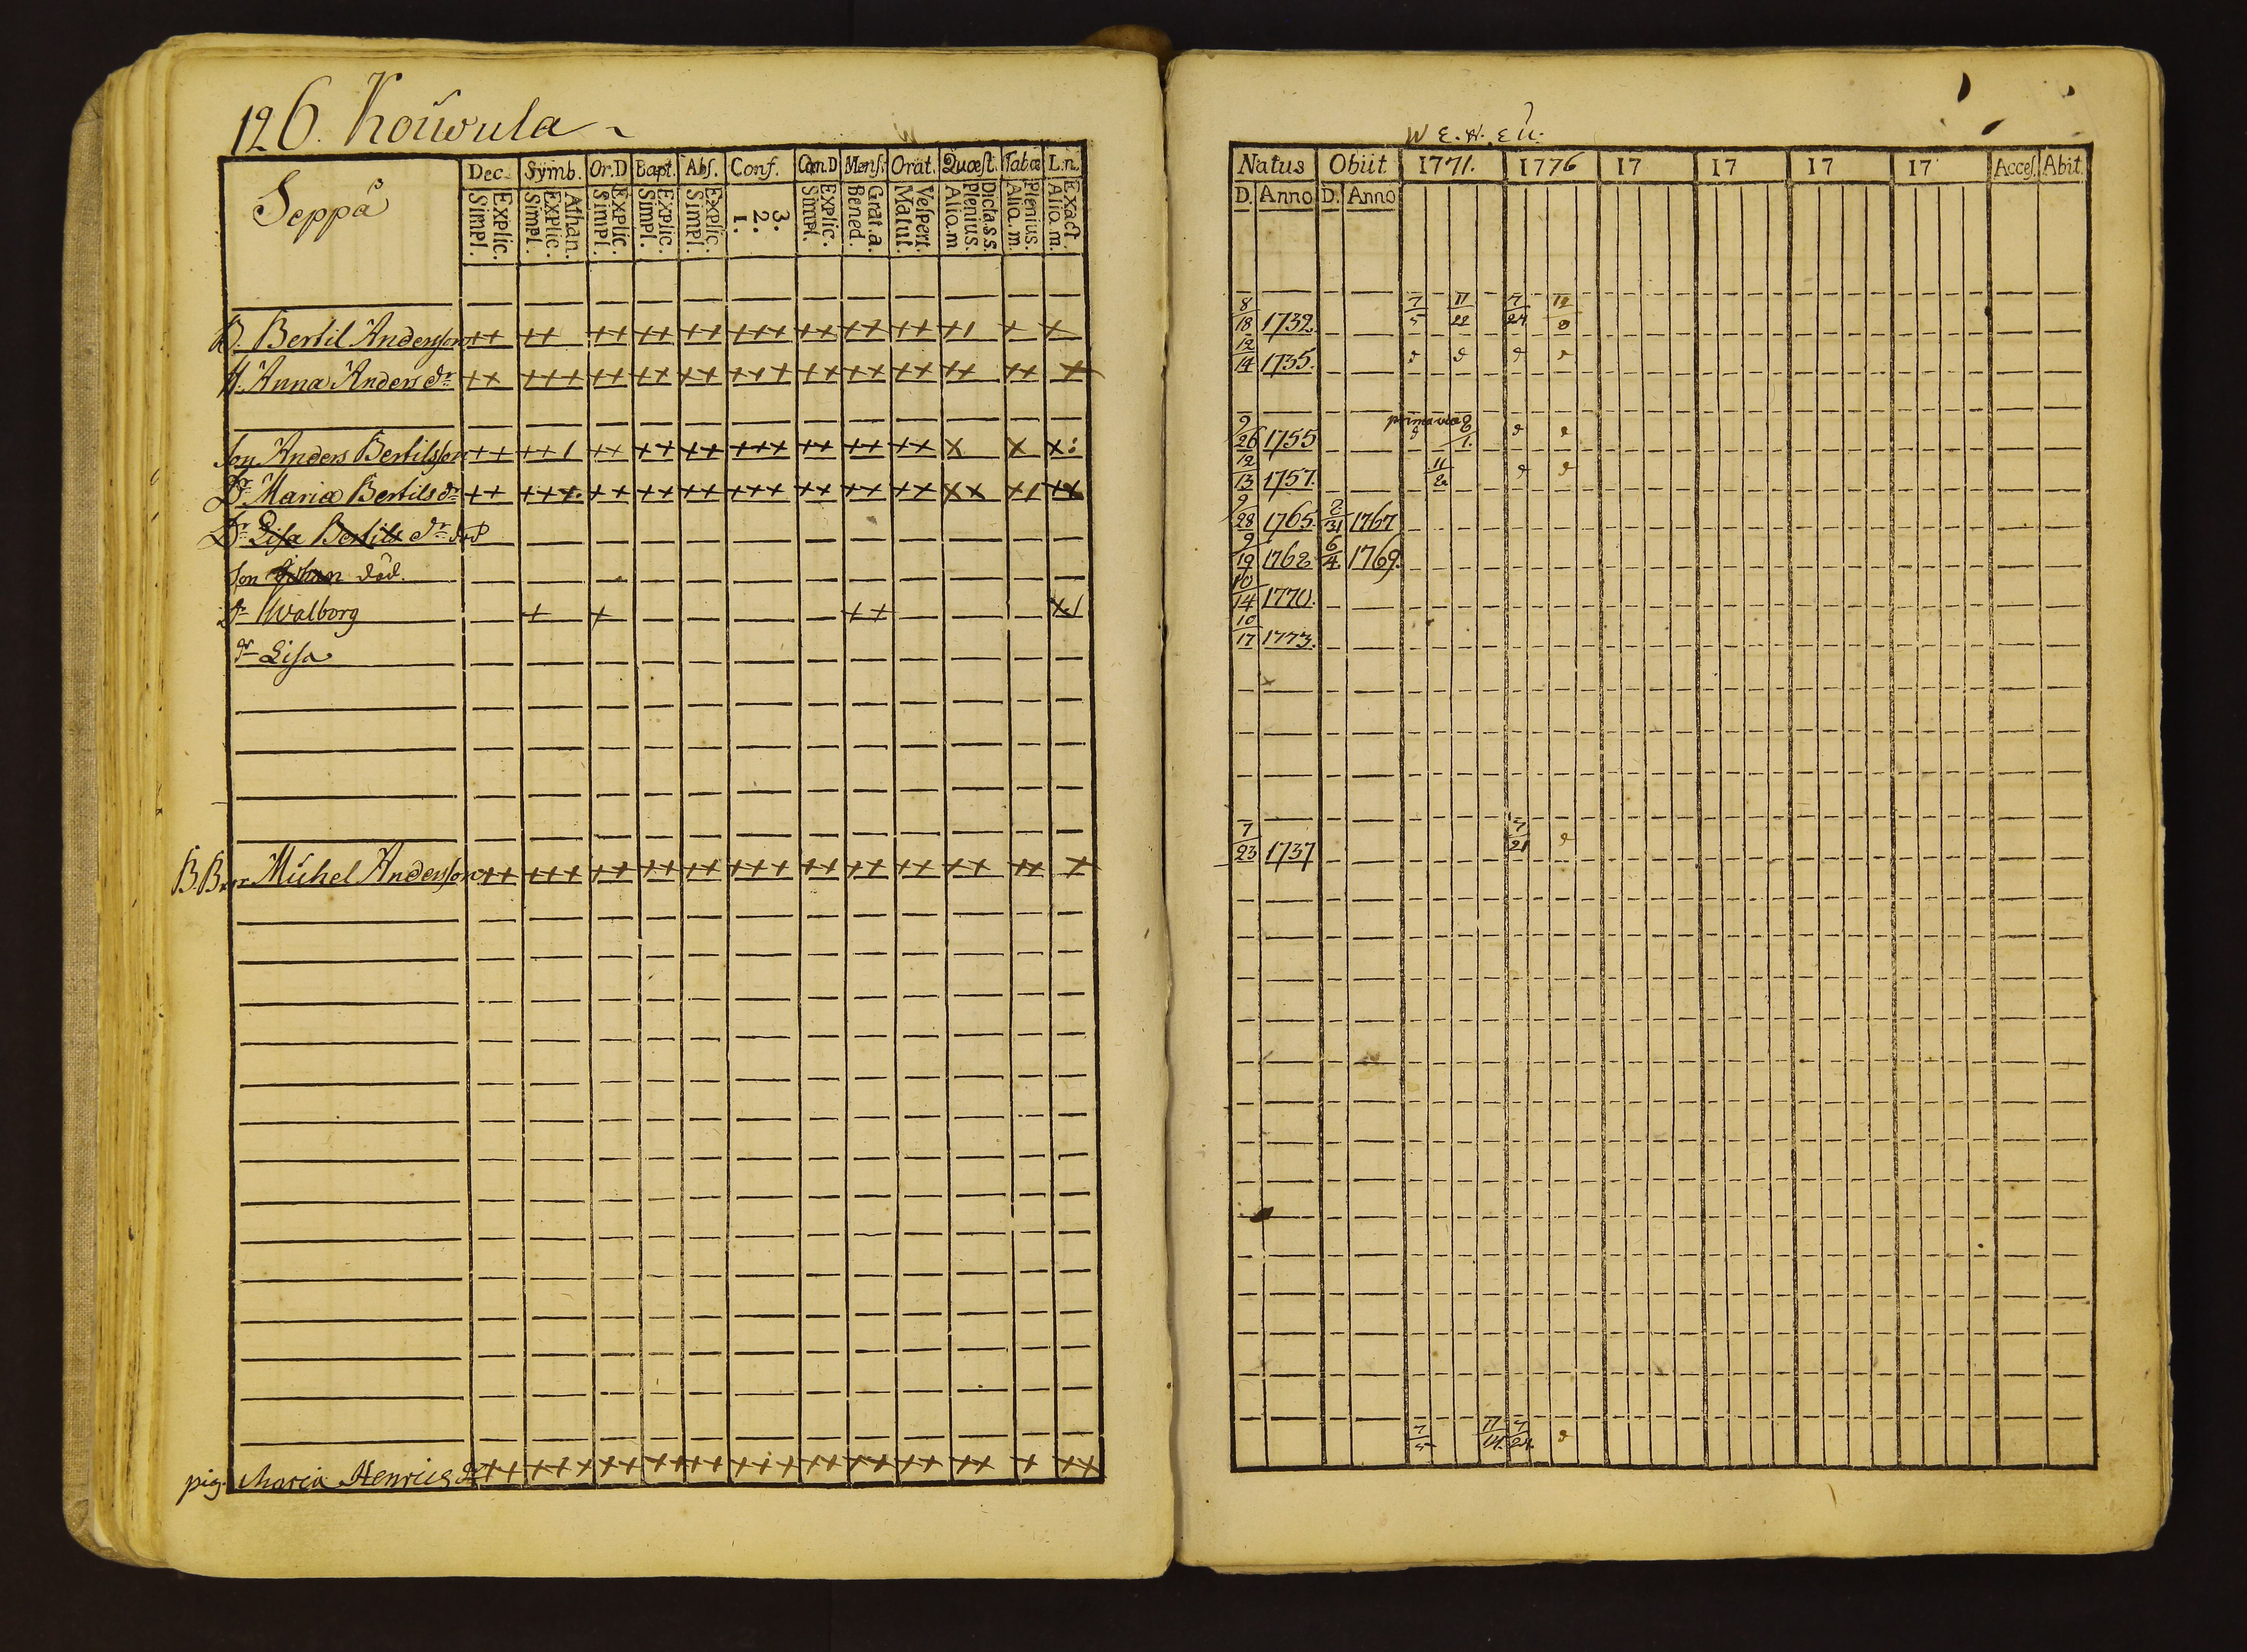 126. Kouwula
Seppä
Dec. Symb. Or.D Bapt. Abs. Conf. Cœn.D Mens. Orat. Quæst. Tabæ L.n.
Explic. Simpl. Athan. Explic. Simpl. Explic. Simpl. Explic. Simpl. Explic. Simpl. 3. 2. 1. Explic. Simpl. Grat.a. Bened. Vespert. Matut. Dicta.s.s. Plenius. Aliq.m. Plenius. Aliq.m. Exact. Aliq.m.
B. Bertil Andersson ++ ++ ++ ++ ++ +++ ++ ++ ++ +1 + +
H. Anna Anders dr ++ +++ ++ ++ ++ +++ ++ ++ ++ ++ ++ +
Son Anders Bertilsson ++ ++1 ++ ++ ++ +++ ++ ++ ++ x x x:
Dr Maria Bertils dr ++ +++ ++ ++ ++ +++ ++ ++ ++ xx x1 ++
Dr Lisa Bertils dr död
Son Johan död.
dr Walborg + + ++ x1
dr Lisa
B.Bror Michel Andersson ++ +++ ++ ++ ++ +++ ++ ++ ++ ++ ++ +
pig. Maria Henrics dr ++ +++ ++ ++ ++ +++ ++ ++ ++ ++ + ++
Natus Obiit 1771. 1776 17 17 17 17 Acces. Abit.
D. Anno D. Anno
8/18 1732. 7/5 11/22 7/24
12/14 1735.
9/26 1755 8/1.
12/13 1757.
9/28 1765 8/31 1767
9/19 1762 6/4 1769.
10/14 1770.
10/17 1773.
7/23 1737 7/21
7/5 11/14 7/24.